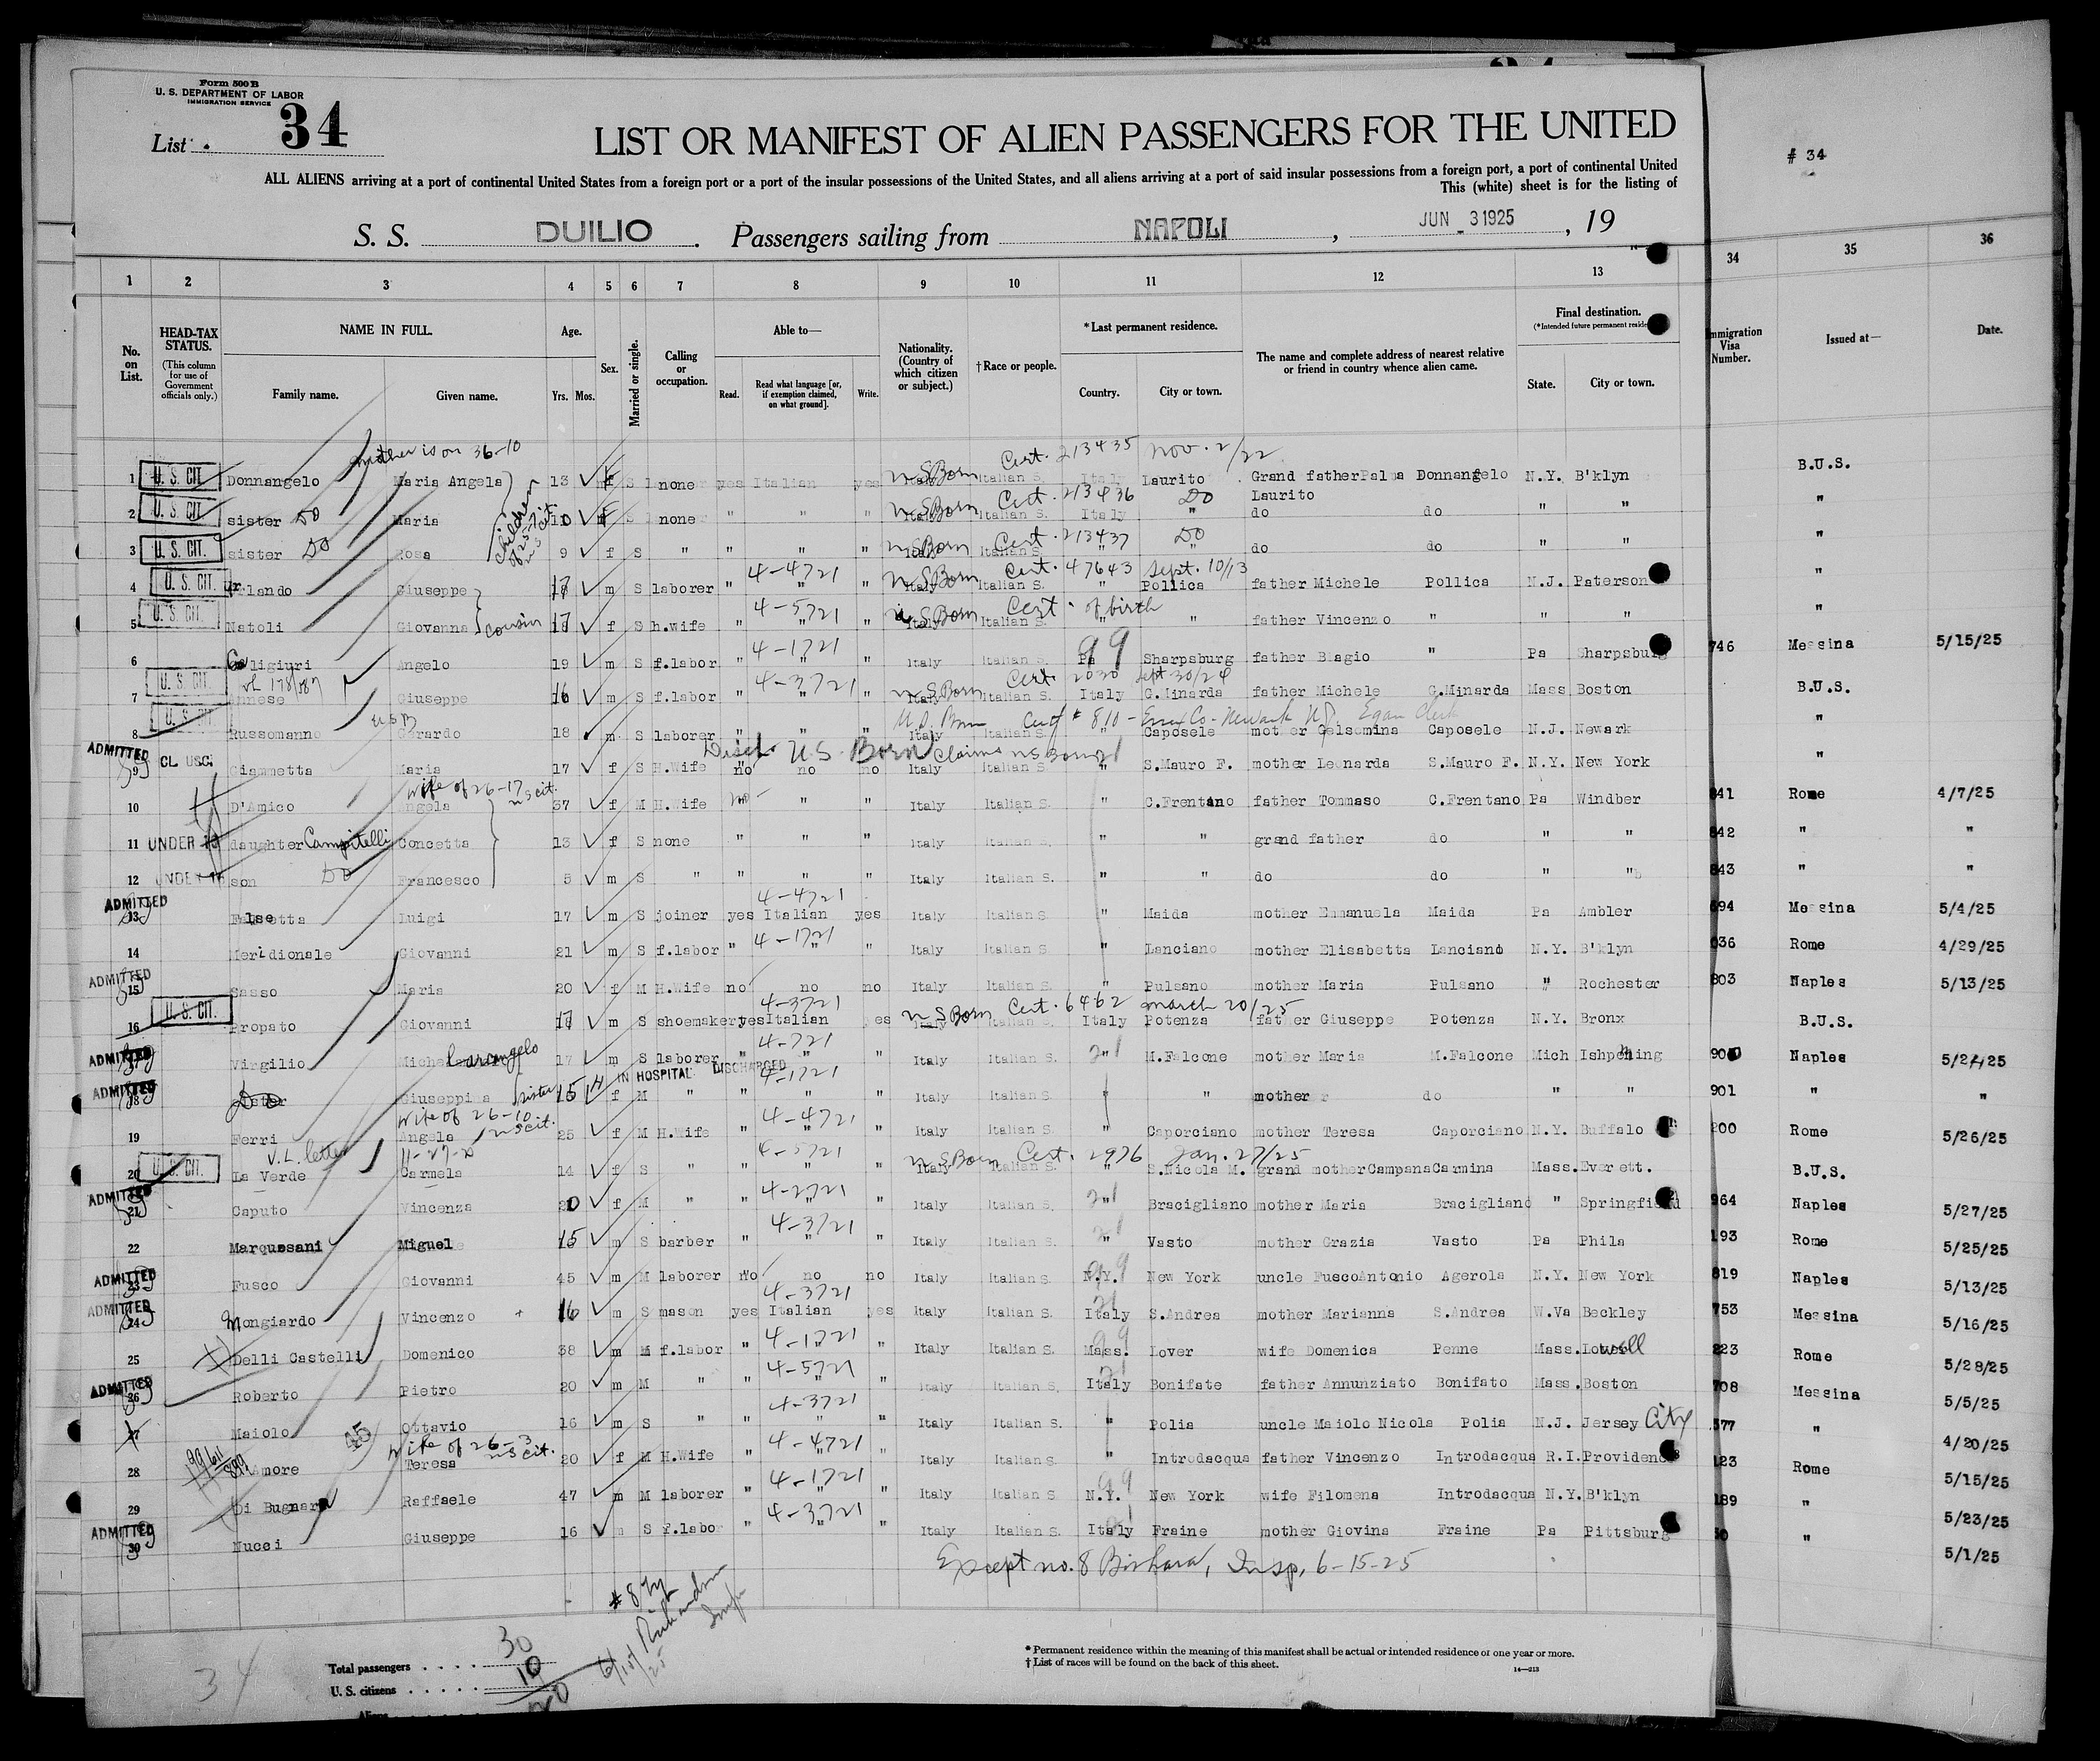 Form 500 B
U. S. DEPARTMENT OF LABOR
IMMIGRATION SERVICE
List 34
LIST OR MANIFEST OF ALIEN PASSENGERS FOR THE UNITED
# 34
ALL ALIENS arriving at a port of continental United States from a foreign port or a port of the insular possessions of the United States, and all aliens arriving at a port of said insular possessions from a foreign port, a port of continental United
This (white) sheet is for the listing of
S. S. DUILIO. Passengers sailing from NAPOLI, JUN 3 1925, 19
1 2 3 4 5 6 7 8 9 10 11 12 13 34 35 36
No. on List.
HEAD-TAX STATUS.
(This column for use of Government officials only.)
NAME IN FULL.
Family name. Given name.
Age.
Yrs. Mos.
Sex.
Married or single.
Calling or occupation.
Able to—
Read. Read what language [or, if exemption claimed, on what ground]. Write.
Nationality. (Country of which citizen or subject.)
† Race or people.
* Last permanent residence.
Country. City or town.
The name and complete address of nearest relative or friend in country whence alien came.
Final destination.
(*Intended future permanent
State. City or town.
Immigration Visa Number.
Issued at—
Date.
mother is on 36-10 Cert. 213435 Nov. 2/22
1 U. S. CIT. Donnangelo Maria Angela 13 f S none yes Italian yes U S Born Italian S. Italy Laurito Grand father Donnangelo N.Y. B'klyn B.U.S.
Laurito
2 U. S. CIT. sister Do Maria 10 f S none " " " U S Born Cert. 213436 Italian S. Italy Do " do do " " "
children of 25-7 U S cit.
3 U. S. CIT. sister Do Rosa 9 f S " " " " U S Born Cert. 213437 Italian S. " Do " do do " " "
4 U. S. CIT. Urlando Giuseppe 17 m S laborer " 4-4721 " " U S Born Cert. 47643 Sept. 10/13 Italian S. " Pollica father Michele Pollica N.J. Paterson "
5 U. S. CIT. Natoli Giovanna cousin 17 f S h.wife " 4-5721 " " U S Born Cert. of birth Italian S. " " father Vincenzo " " " "
6 Caligiuri Angelo 19 m S f.labor " 4-1721 " Italy Italian S. Pa 99 Sharpsburg father Biagio " Pa Sharpsburg 746 Messina 5/15/25
7 U. S. CIT. Annese Giuseppe 16 m S f.labor " 4-3721 " U S Born Cert. 2030 Sept 30/24 Italian S. Italy G.Minarda father Michele G.Minarda Mass Boston B.U.S.
8 U. S. CIT. Russomanno Gerardo 18 m S laborer " " " U.S. Born Cert # 810 - Essex Co - Newark N.J. Italy Italian S. " Caposele mother Gelsomina Caposele N.J. Newark "
ADMITTED 9 CL USC. Giammetta Maria 17 f S H.Wife no no no Disch. U.S. Born claims U S Born Italy Italian S. " S.Mauro F. mother Leonarda S.Mauro F. N.Y. New York "
wife of 26-17 U S cit.
10 D'Amico Angela 37 f M H.Wife no " " Italy Italian S. " C.Frentano father Tommaso C.Frentano Pa Windber 841 Rome 4/7/25
11 UNDER 16 daughter Campitelli Concetta 13 f S none " " " Italy Italian S. " " grand father do " " 842 " "
12 UNDER 16 son Do Francesco 5 m S " " " " Italy Italian S. " " do do " " 843 " "
ADMITTED 13 Falsetta Luigi 17 m S joiner yes Italian 4-4721 yes Italy Italian S. " Maida mother Emmanuela Maida Pa Ambler 694 Messina 5/4/25
14 Meridionale Giovanni 21 m S f.labor " 4-1721 " " Italy Italian S. " Lanciano mother Elisabetta Lanciano N.Y. B'klyn 036 Rome 4/29/25
ADMITTED 15 Sasso Maria 20 f M H.Wife no no no Italy Italian S. " Pulsano mother Maria Pulsano " Rochester 803 Naples 5/13/25
16 U. S. CIT. Propato Giovanni 17 m S shoemaker yes Italian 4-3721 yes U S Born Cert. 6462 March 20/25 Italian S. Italy Potenza father Giuseppe Potenza N.Y. Bronx B.U.S.
ADMITTED 17 Virgilio Michelarcangelo 17 m S laborer " 4-721 " Italy Italian S. " M.Falcone mother Maria M.Falcone Mich Ishpeming 900 Naples 5/24/25
IN HOSPITAL DISCHARGED
ADMITTED 18 Do Giuseppina sister 15 f M " " 4-1721 " Italy Italian S. " " mother do " " 901 " "
wife of 26-10 U S cit.
19 Ferri Angela 25 f M H.Wife " 4-4721 " " Italy Italian S. " Caporciano mother Teresa Caporciano N.Y. Buffalo 200 Rome 5/26/25
V.L. letter 11-27-20
20 U. S. CIT. La Verde Carmela 14 f S " " 4-5721 " U S Born Cert. 2976 Jan. 27/25 Italian S. " S.Nicola M. grand mother Campana Carmina Mass. Everett. B.U.S.
ADMITTED 21 Caputo Vincenza 20 f M " " 4-2721 " " Italy Italian S. " Bracigliano mother Maria Bracigliano " Springfield 964 Naples 5/27/25
22 Marquesani Miguel 15 m S barber " 4-3721 " " Italy Italian S. " Vasto mother Grazia Vasto Pa Phila 193 Rome 5/25/25
ADMITTED 23 Fusco Giovanni 45 m M laborer no no no Italy Italian S. N.Y. 99 New York uncle Fusco Antonio Agerola N.Y. New York 819 Naples 5/13/25
ADMITTED 24 Mongiardo Vincenzo 16 m S mason yes Italian 4-3721 yes Italy Italian S. Italy S.Andrea mother Marianna S.Andrea W.Va Beckley 753 Messina 5/16/25
25 Delli Castelli Domenico 38 m M f.labor " 4-1721 " " Italy Italian S. Mass. 99 Lover wife Domenica Penne Mass. Lowell 223 Rome 5/28/25
ADMITTED 26 Roberto Pietro 20 m M " " 4-5721 " " Italy Italian S. Italy Bonifate father Annunziato Bonifato Mass. Boston 708 Messina 5/5/25
27 Maiolo Ottavio 16 m S " " 4-3721 " " Italy Italian S. " Polia uncle Maiolo Nicola Polia N.J. Jersey City 577 " 4/20/25
wife of 26-3 U S cit.
28 Amore Teresa 20 f M H.Wife " 4-4721 " " Italy Italian S. " Introdacqua father Vincenzo Introdacqua R.I. Providence 123 Rome 5/15/25
29 Di Bugnara Raffaele 47 m M laborer " 4-1721 " " Italy Italian S. N.Y. 99 New York wife Filomena Introdacqua N.Y. B'klyn 189 " 5/23/25
ADMITTED 30 Nucci Giuseppe 16 m S f.labor " 4-3721 " " Italy Italian S. Italy Fraine mother Giovina Fraine Pa Pittsburg " 5/1/25
Except no. 8 Bishara, Insp, 6-15-25
Richardson
Insp
6/15/25
34
Total passengers . . . . 30
U. S. citizens . . . . . 10
Aliens 20
* Permanent residence within the meaning of this manifest shall be actual or intended residence of one year or more.
† List of races will be found on the back of this sheet.
14—213